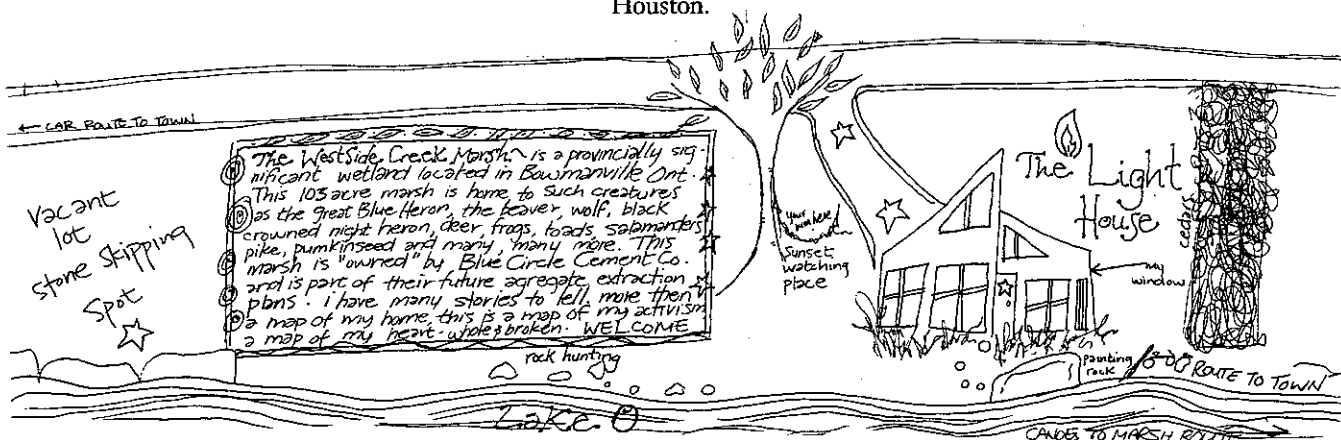 Houston.
← CAR ROUTE TO TOWN
The WestSide Creek Marsh is a provincially sig-
nificant wetland located in Bowmanville Ont.
This 103 acre marsh is home to such creatures
as the great Blue Heron, the beaver, wolf, black
crowned night heron, deer, frogs, toads, salamanders
pike, pumkinseed and many, many more. This
marsh is "owned" by Blue Circle Cement Co.
and is part of their future agregate extraction
plans. i have many stories to tell, more then
a map of my home, this is a map of my activism
a map of my heart - whole & broken. WELCOME
vacant
lot
stone skipping
spot
rock hunting
Your bum here
Sunset
watching
place
The Light
House
cedars
my
window
painting
rock
ROUTE TO TOWN
Lake O
CANOE TO MARSH ROUTE